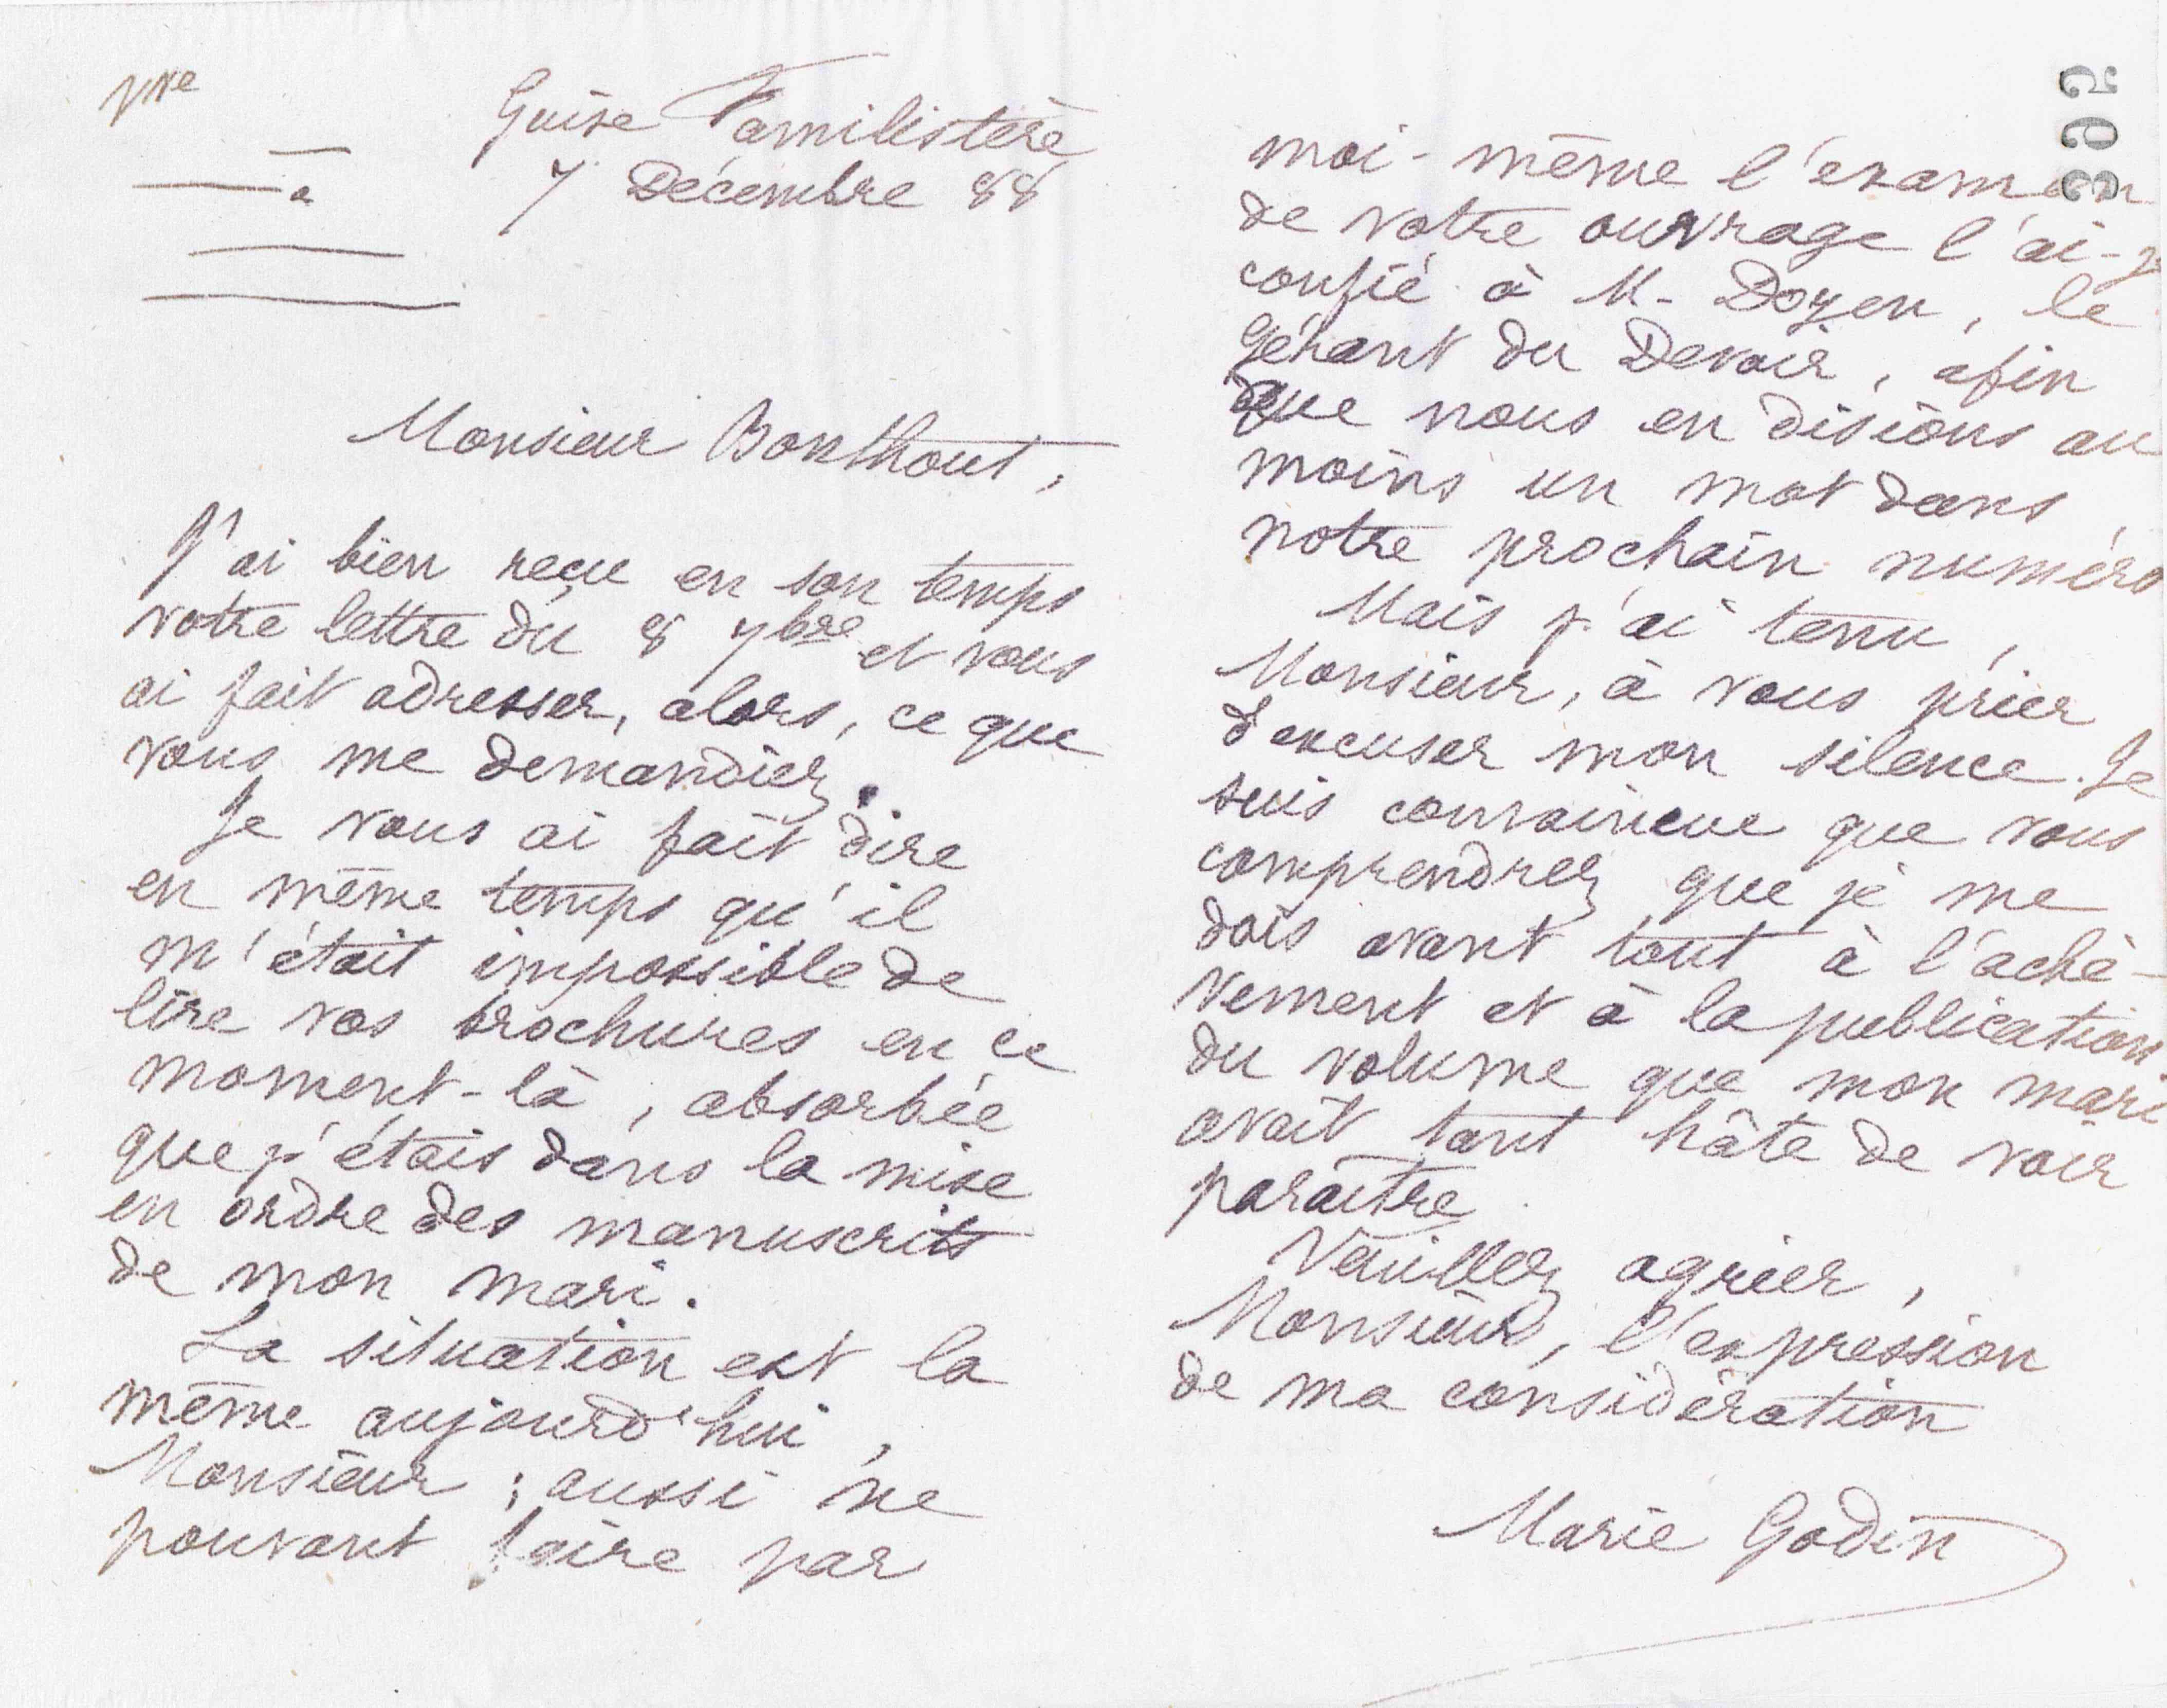 Vve
à
Guise Familistère
7 Décembre 88
Monsieur Bonthout,
J'ai bien reçu en son temps
votre lettre du 8 7bre et vous
ai fait adresser, alors, ce que
vous me demandiez.
Je vous ai fait dire
en même temps qu'il
m'était impossible de
lire vos brochures en ce
moment-là, absorbée
que j'étais dans la mise
en ordre des manuscrits
de mon mari.
La situation est la
même aujourd'hui,
Monsieur ; aussi ne
pouvant faire par
395
moi-même l'examen
de votre ouvrage l'ai-je
confié à M. Doyen, le
gérant du Devoir, afin
que nous en disions au
moins un mot dans
notre prochain numéro
Mais j'ai tenu,
Monsieur, à vous prier
d'excuser mon silence. Je
suis convaincue que vous
comprendrez que je me
dois avant tout à l'achè-
vement et à la publication
du volume que mon mari
avait tant hâte de voir
paraître
Veuillez agréer,
Monsieur, l'expression
de ma considération
Marie Godin